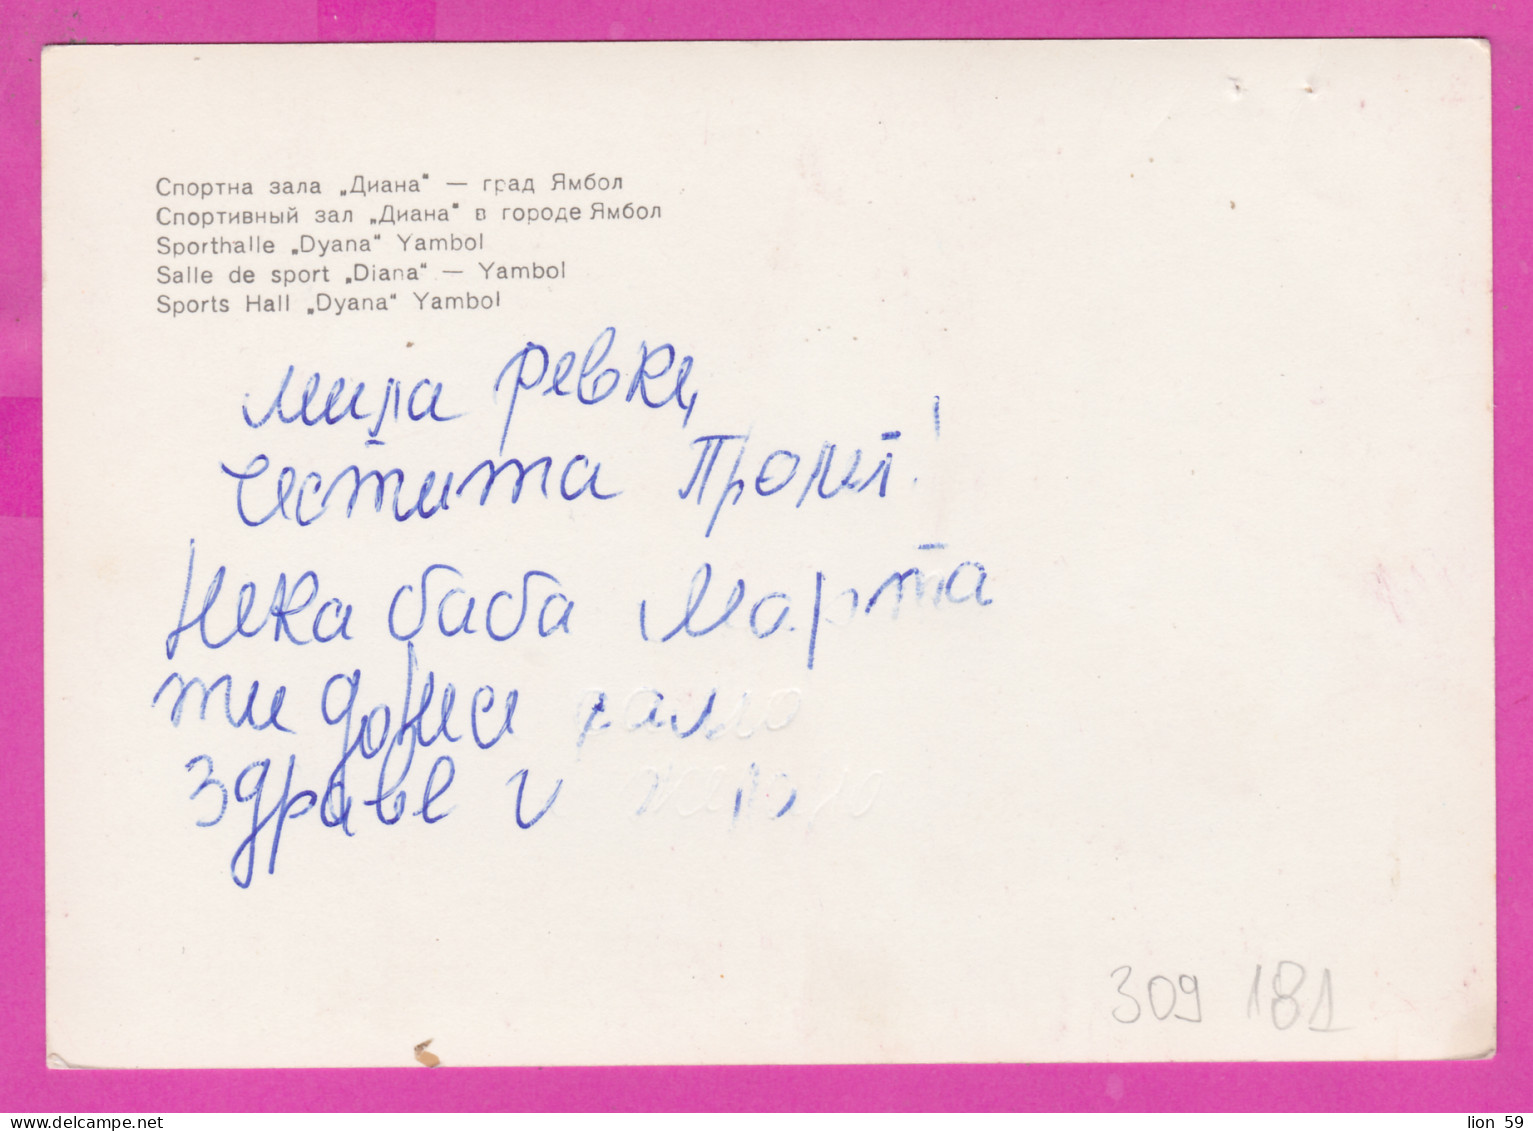 Спортна зала „Диана“ — град Ямбол
Спортивный зал „Диана“ в городе Ямбол
Sporthalle „Dyana“ Yambol
Salle de sport „Diana“ — Yambol
Sports Hall „Dyana“ Yambol
мила Ревке,
честита Прол.!
Нека баба Марта
ти донесе само
здраве и
309 181
lion 59